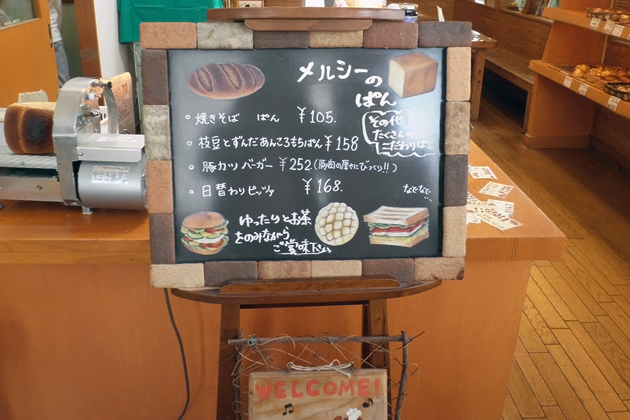 メルシーの
ぱん
。焼きそば ぱん ¥105.
。枝豆とずんだあんころもちぱん ¥158
。豚カツ バーガー ¥252.(豚肉の厚さにびっくり!!)
。日替わりピッツァ ¥168.
その他
たくさんの
こだわりぱん
などなど…
ゆったりとお茶
をのみながら
ご賞味下さい
WELCOME!